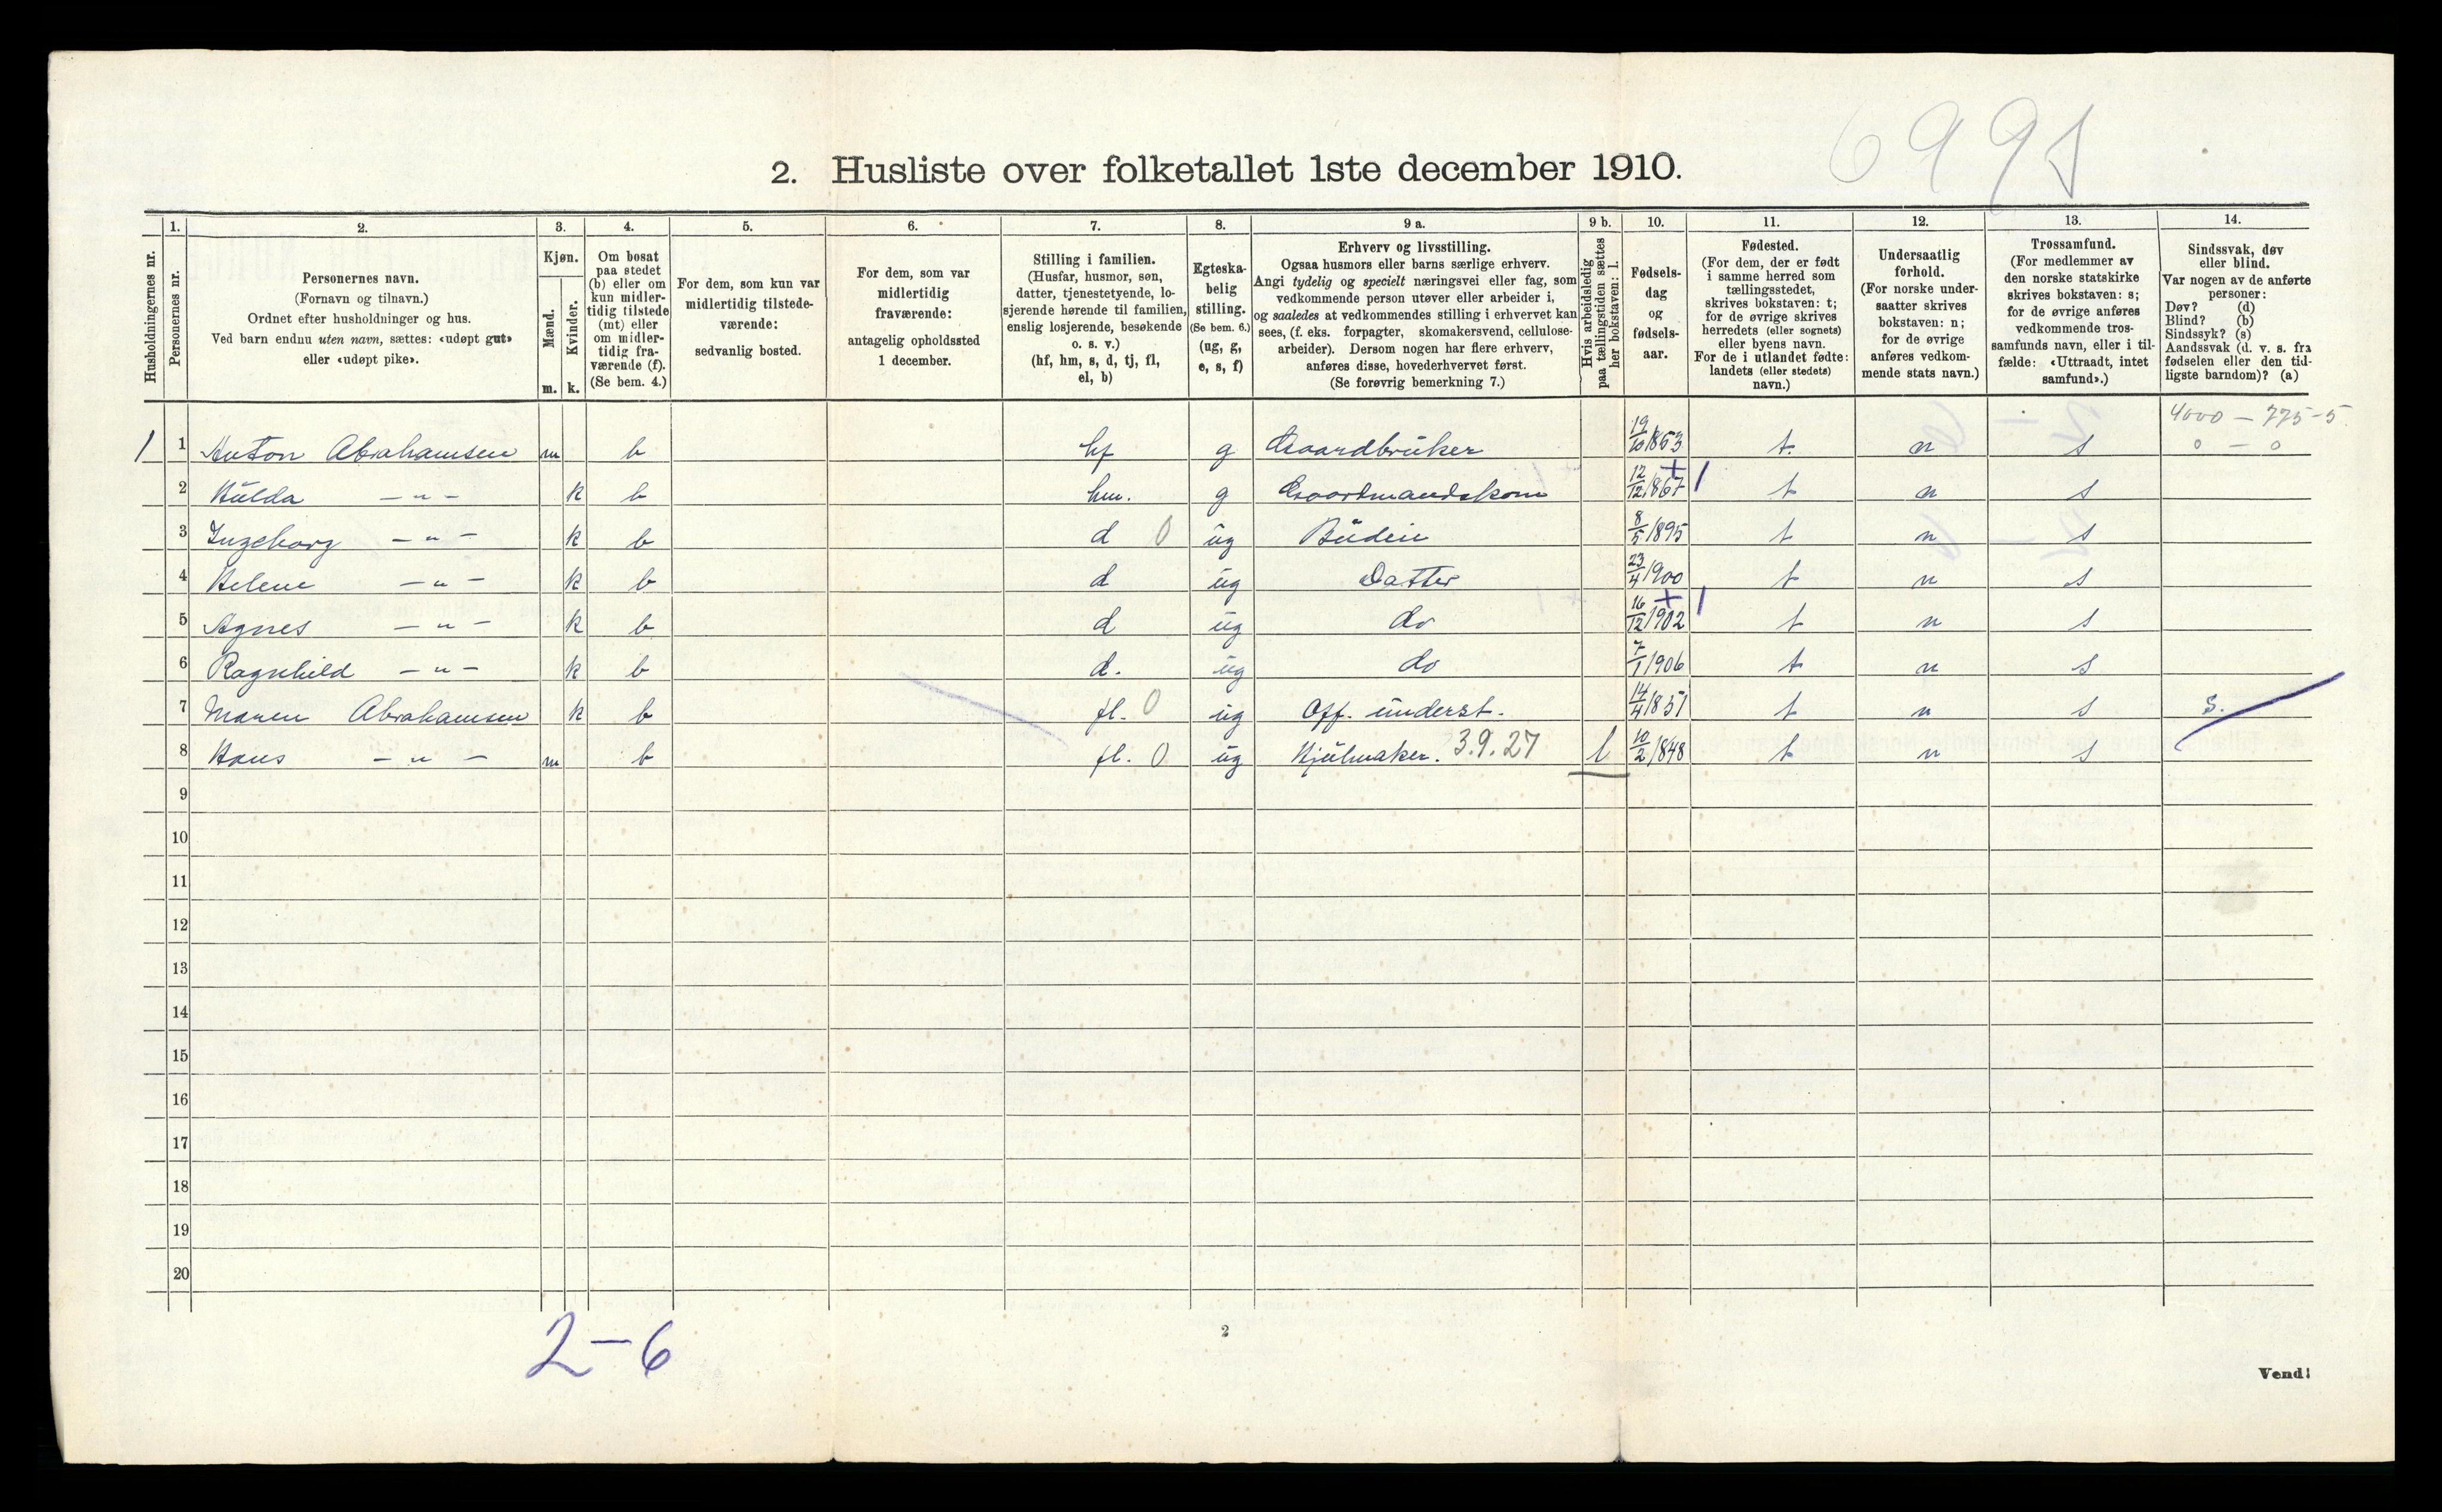 6991
2. Husliste over folketallet 1ste december 1910.
Husholdningernes nr.
1.
Personernes nr.
2.
Personernes navn.
(Fornavn og tilnavn.)
Ordnet efter husholdninger og hus.
Ved barn endnu uten navn, sættes: «udøpt gut»
eller «udøpt pike».
3.
Kjøn.
Mænd.
Kvinder.
m. k.
4.
Om bosat
paa stedet
(b) eller om
kun midler-
tidig tilstede
(mt) eller
om midler-
tidig fra-
værende (f).
(Se bem. 4.)
5.
For dem, som kun var
midlertidig tilstede-
værende:
sedvanlig bosted.
6.
For dem, som var
midlertidig
fraværende:
antagelig opholdssted
1 december.
7.
Stilling i familien.
(Husfar, husmor, søn,
datter, tjenestetyende, lo-
sjerende hørende til familien,
enslig losjerende, besøkende
o. s. v.)
(hf, hm, s, d, tj, fl,
el, b)
8.
Egteska-
belig
stilling.
(Se bem. 6.)
(ug, g,
e, s, f)
9 a.
Erhverv og livsstilling.
Ogsaa husmors eller barns særlige erhverv.
Angi tydelig og specielt næringsvei eller fag, som
vedkommende person utøver eller arbeider i,
og saaledes at vedkommendes stilling i erhvervet kan
sees, (f. eks. forpagter, skomakersvend, cellulose-
arbeider). Dersom nogen har flere erhverv,
anføres disse, hovederhvervet først.
(Se forøvrig bemerkning 7.)
9 b.
Hvis arbeidsledig
paa tællingstiden sættes
her bokstaven: l.
10.
Fødsels-
dag
og
fødsels-
aar.
11.
Fødested.
(For dem, der er født
i samme herred som
tællingsstedet,
skrives bokstaven: t;
for de øvrige skrives
herredets (eller sognets)
eller byens navn.
For de i utlandet fødte:
landets (eller stedets)
navn.)
12.
Undersaatlig
forhold.
(For norske under-
saatter skrives
bokstaven: n;
for de øvrige
anføres vedkom-
mende stats navn.)
13.
Trossamfund.
(For medlemmer av
den norske statskirke
skrives bokstaven: s;
for de øvrige anføres
vedkommende tros-
samfunds navn, eller i til-
fælde: «Uttraadt, intet
samfund».)
14.
Sindssvak, døv
eller blind.
Var nogen av de anførte
personer:
Døv? (d)
Blind? (b)
Sindssyk? (s)
Aandssvak (d. v. s. fra
fødselen eller den tid-
ligste barndom)? (a)
4000 — 775-5
0 — 0
1 1 Anton Abrahamsen m b hf g Gaardbruker 19/10 1863 t. n s
2 Hulda — " — k b hm. g Gaardmandskone 12/12 1867 + 1 t n s
3 Ingeborg — " — k b d 0 ug Budeie 8/5 1895 t n s
4 Helene — " — k b d ug Datter 23/4 1900 t n s
5 Agnes — " — k b d ug do 16/12 1902 + 1 t n s
6 Ragnhild — " — k b d. ug do 7/1 1906 t n s
7 Maren Abrahamsen k b fl. 0 ug Off. underst. 14/4 1851 t n s s.
8 Hans — " — m b fl. 0 ug Hjulmaker. 3.9.27 l 10/2 1848 t n s
9
10
11
12
13
14
15
16
17
18
19
20
2 — 6
2
Vend!